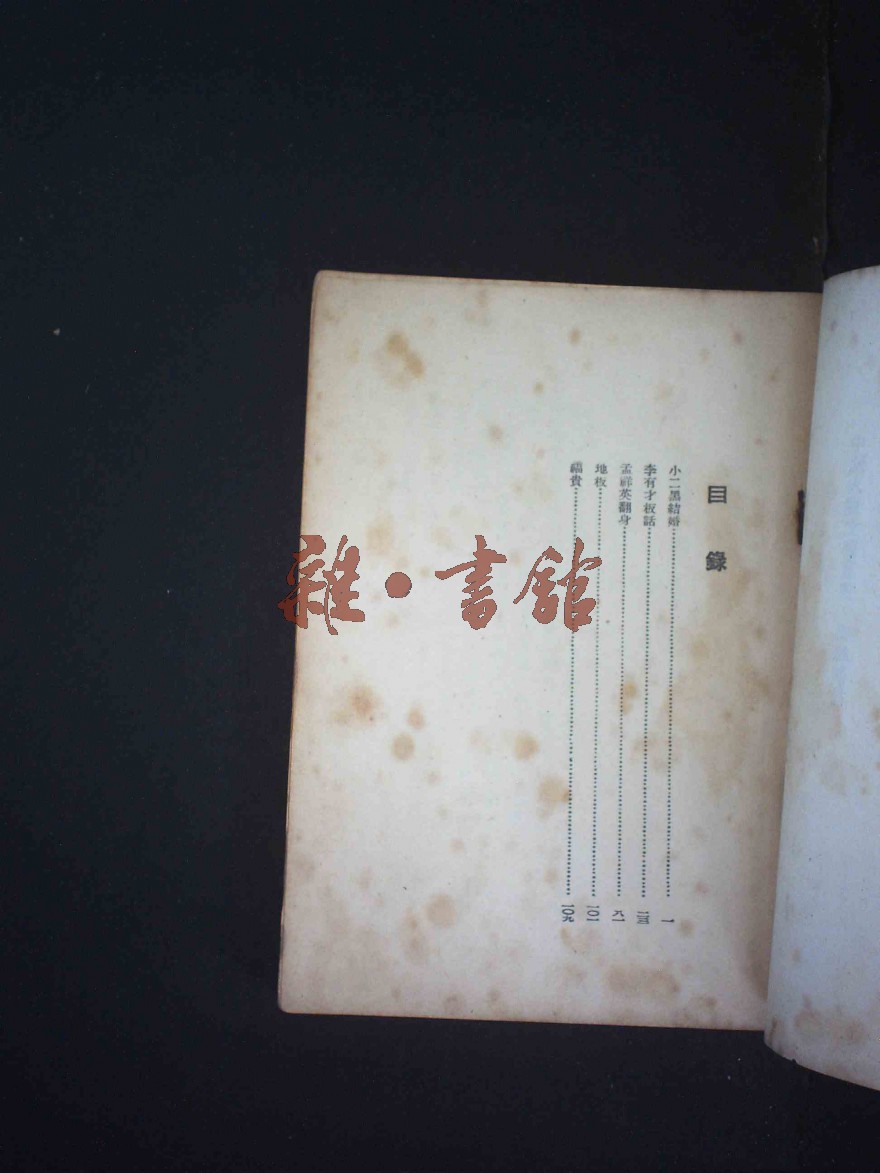 目錄
小二黑結婚 一
李有才板話 二三
孟祥英翻身 八一
地板 一〇一
福貴 一〇九
雜·書館